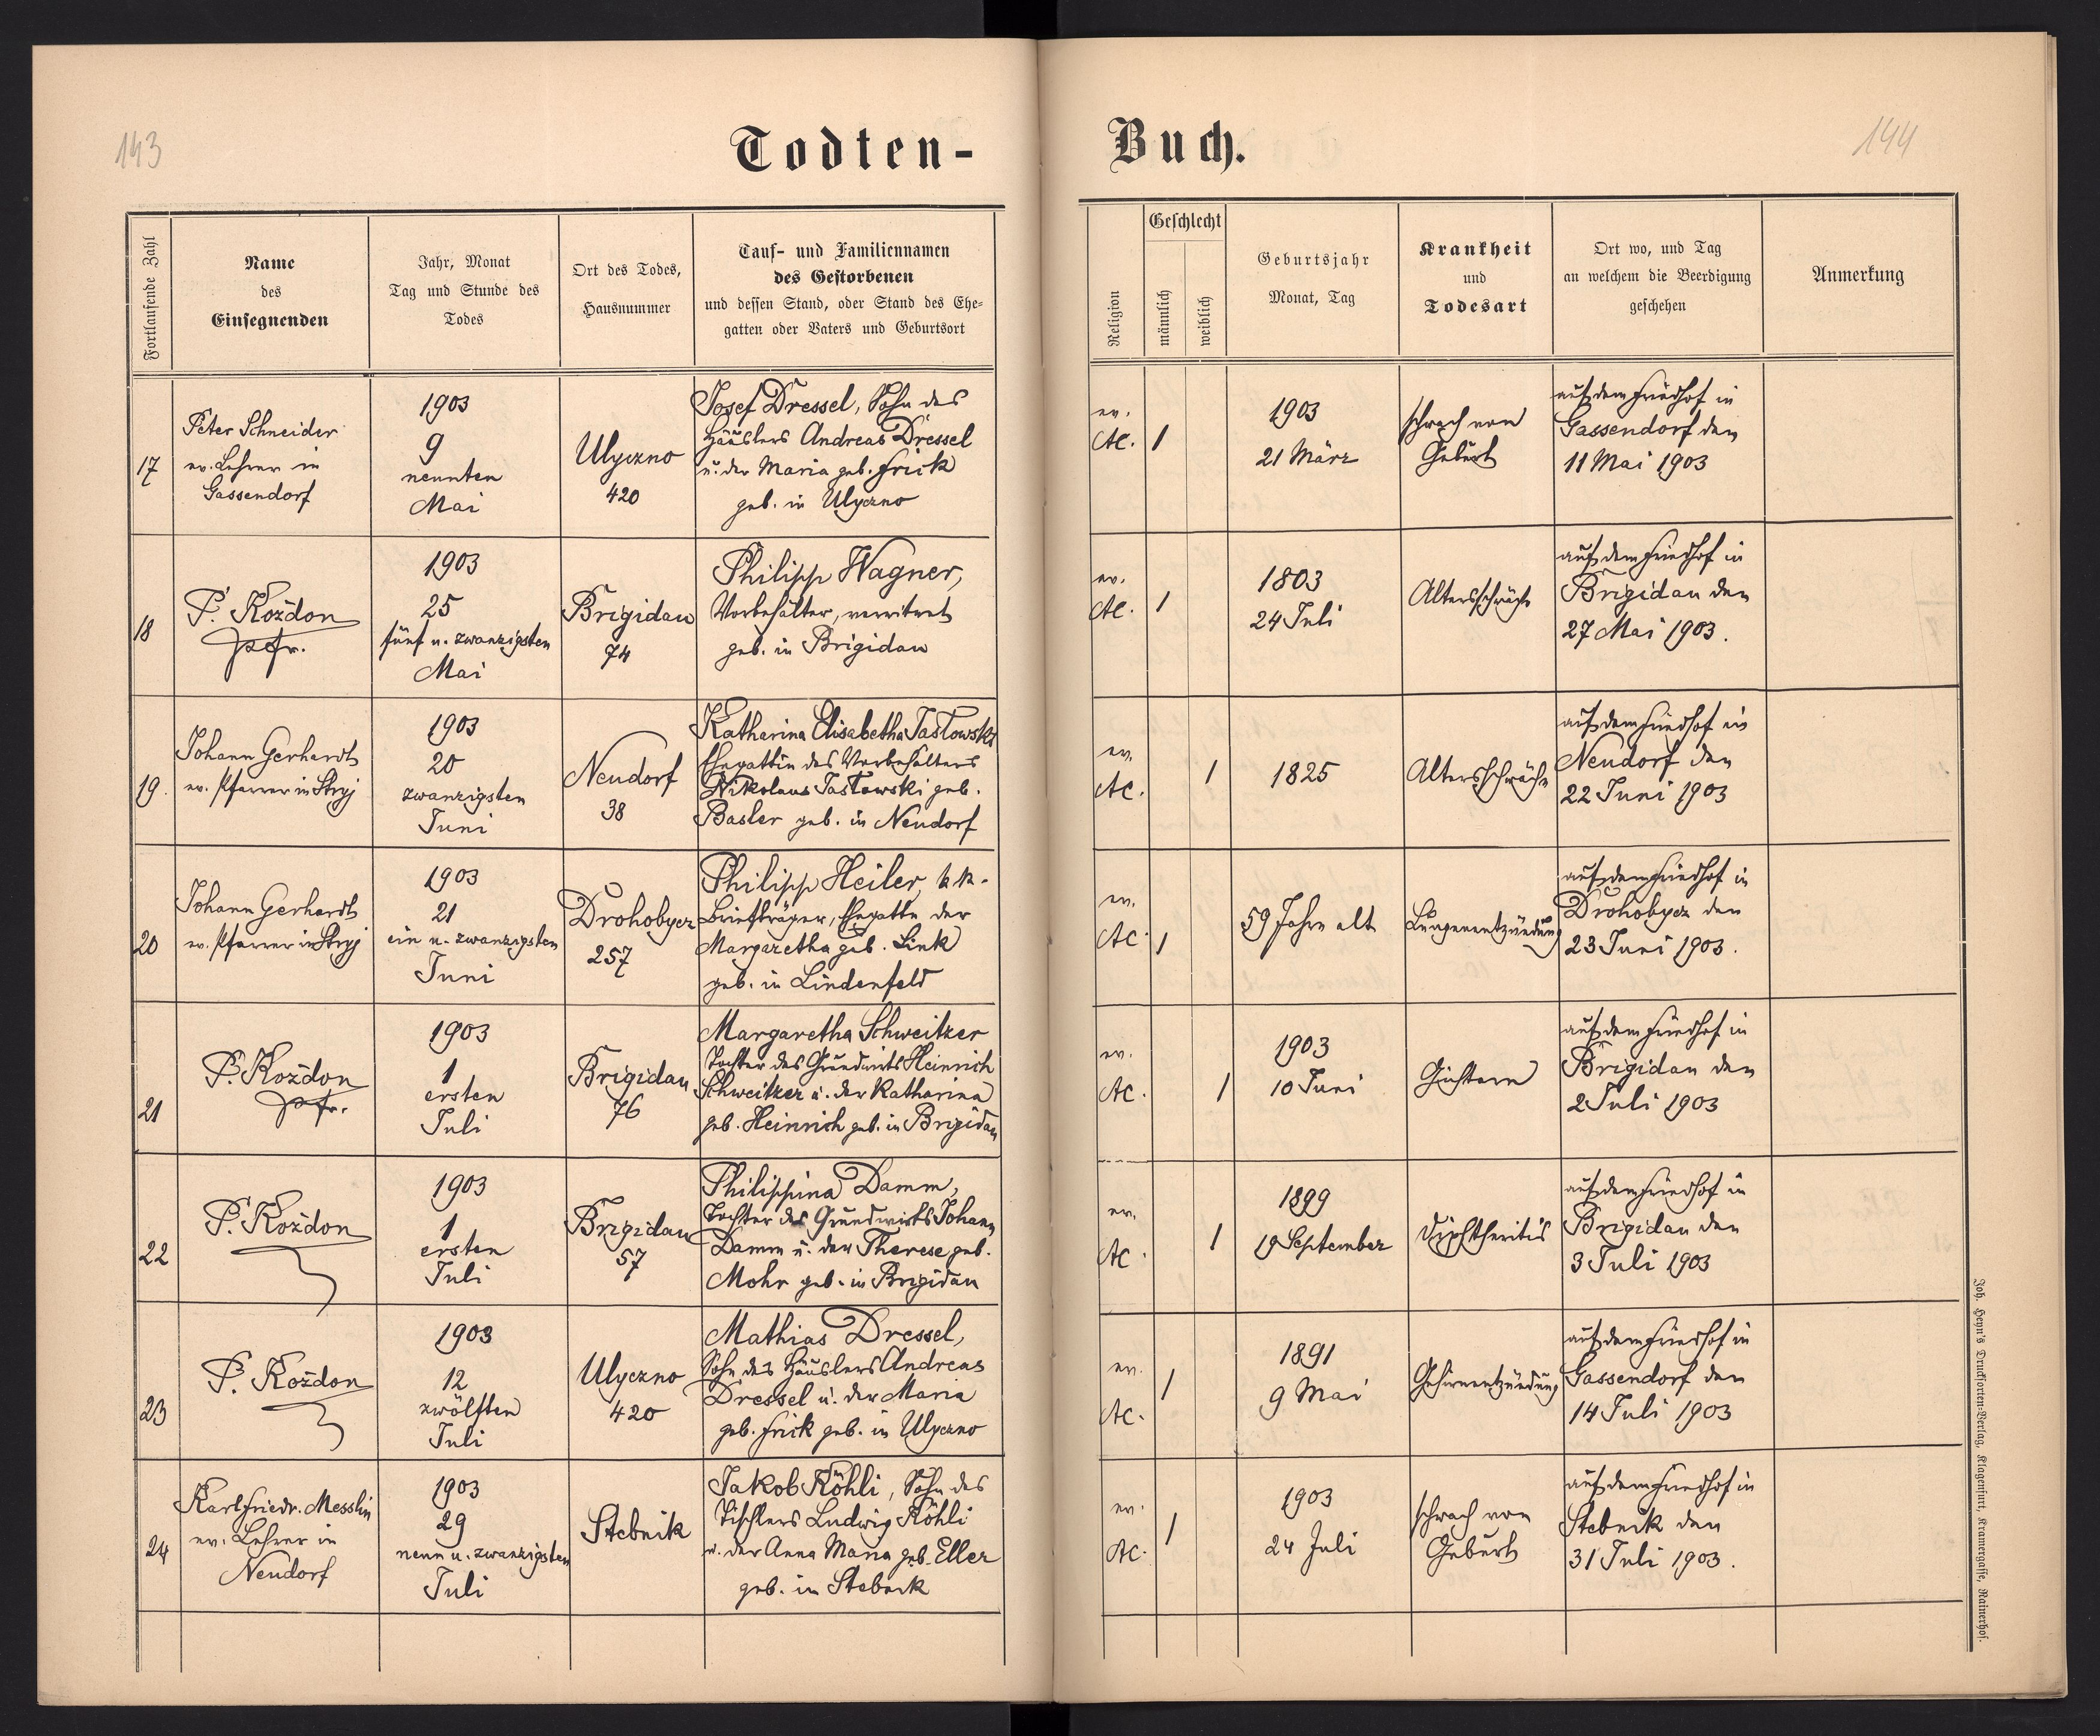 143
Todten-
Buch.
144
Fortlaufende Zahl
Name
des
Einsegnenden
Jahr, Monat
Tag und Stunde des
Todes
Ort des Todes,
Hausnummer
Tauf- und Familiennamen
des Gestorbenen
und dessen Stand, oder Stand des Ehe-
gatten oder Vaters und Geburtsort
Religion
Geschlecht
männlich
weiblich
Geburtsjahr
Monat, Tag
Krankheit
und
Todesart
Ort wo, und Tag
an welchem die Beerdigung
geschehen
Anmerkung
17
Peter Schneider
ev. Lehrer in
Gassendorf
1903
9
neunten
Mai
Ulyczno
420
Josef Dressel, Sohn des
Häuslers Andreas Dressel
u. der Maria geb. Frick
geb. in Ulyczno
ev.
AC.
1
1903
21 März
schwach von
Geburt
auf dem Friedhof in
Gassendorf den
11 Mai 1903
18
P. Koždon
Pfr.
1903
25
fünf u. zwanzigsten
Mai
Brigidau
74
Philipp Wagner,
Vorbehälter, verwitwet
geb. in Brigidau
ev.
AC.
1
1803
24 Juli
Altersschwäche
auf dem Friedhof in
Brigidau den
27 Mai 1903.
19.
Johann Gerhardt
ev. Pfarrer in Stryj
1903
20
zwanzigsten
Juni
Neudorf
38
Katharina Elisabetha Tastowski
Ehegattin des Vorbehälters
Nikolaus Tastowski geb.
Basler geb. in Neudorf
ev.
AC.
1
1825
Altersschwäche
auf dem Friedhof in
Neudorf den
22 Juni 1903
20
Johann Gerhardt
ev. Pfarrer in Stryj
1903
21
ein u. zwanzigsten
Juni
Drohobycz
257
Philipp Heiler, k.k.
Briefträger, Ehegatte der
Margaretha geb. Link
geb. in Lindenfeld
ev.
AC.
1
59 Jahre alt
Lungenentzündung
auf dem Friedhof in
Drohobycz den
23 Juni 1903.
21
P. Koždon
Pfr.
1903
1
ersten
Juli
Brigidau
76
Margaretha Schweitzer
Tochter des Grundwirts Heinrich
Schweitzer u. der Katharina
geb. Heinrich geb. in Brigidau
ev.
AC.
1
1903
10 Juni
Gichtern
auf dem Friedhof in
Brigidau den
2 Juli 1903
22
P. Koždon
1903
1
ersten
Juli
Brigidau
57
Philippina Damm,
Tochter des Grundwirts Johann
Damm u. der Therese geb.
Mohr geb. in Brigidau
ev.
AC.
1
1899
19 September
Diphtheritis
auf dem Friedhof in
Brigidau den
3 Juli 1903
23
P. Koždon
1903
12
zwölften
Juli
Ulyczno
420
Mathias Dressel,
Sohn des Häuslers Andreas
Dressel u. der Maria
geb. Frick geb. in Ulyczno
ev.
AC.
1
1891
9 Mai
Gehirnentzündung
auf dem Friedhof in
Gassendorf den
14 Juli 1903
24
Karl Friedr. Messlin
ev. Lehrer in
Neudorf
1903
29
neun u. zwanzigsten
Juli
Stebnik
Jakob Köhli, Sohn des
Tischlers Ludwig Köhli
u. der Anna Maria geb. Eller
geb. in Stebnik
ev.
AC.
1
1903
24 Juli
schwach von
Geburt
auf dem Friedhof in
Stebnik den
31 Juli 1903.
Joh. Heyn's Drucksorten-Verlag, Klagenfurt, Kramergasse, Rainerhof.